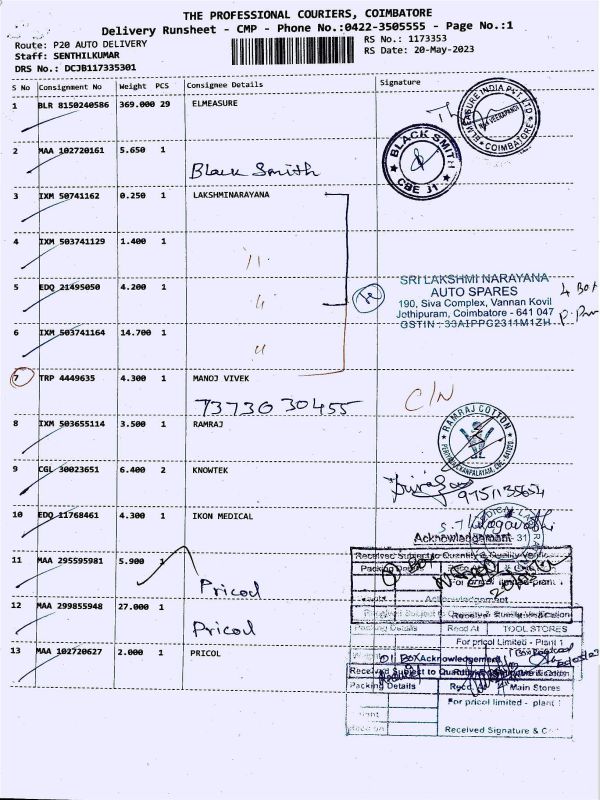 THE PROFESSIONAL COURIERS, COIMBATORE
Delivery Runsheet - CMP - Phone No.:0422-3505555 - Page No.:1
Route: P20 AUTO DELIVERY
RS No.: 1173353
Staff: SENTHILKUMAR
RS Date: 20-May-2023
DRS No.: DCJB117335301
S No Consignment No Weight PCS Consignee Details Signature
1 BLR 8150240586 369.000 29 ELMEASURE
ELMEASURE INDIA PVT LTD
COIMBATORE
2 MAA 102720161 5.650 1
Black Smith
BLACK SMITH
CBE J1
3 IXM 50741162 0.250 1 LAKSHMINARAYANA
4 IXM 503741129 1.400 1
5 EDQ 21495050 4.200 1
SRI LAKSHMI NARAYANA
AUTO SPARES
190, Siva Complex, Vannan Kovil
Jothipuram, Coimbatore - 641 047
GSTIN : 33AIPPG2311M1ZH
4 Box
6 IXM 503741164 14.700 1
7 TRP 4449635 4.300 1 MANOJ VIVEK
73730 30455
C/N
8 IXM 503655114 3.500 1 RAMRAJ
RAMRAJ COTTON
9 CGL 30023651 6.400 2 KNOWTEK
9751135654
10 EDQ 11768461 4.300 1 IKON MEDICAL
Acknowledgement
11 MAA 295595981 5.900 1
Pricol
Received Subject to Quantity & Quality
For pricol limited plant
12 MAA 299855948 27.000 1
Pricol
Packing Details Recd At TOOL STORES
For pricol Limited - Plant 1
13 MAA 102720627 2.000 1 PRICOL
01 BOX Acknowledgement
Received Subject to
Packing Details Main Stores
For pricol limited - plant
Received Signature &